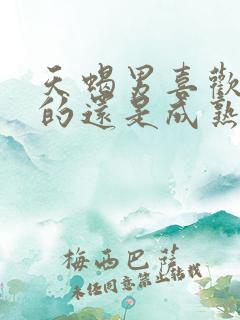 天蠍男喜歡
的還是成熟
梅西巴蓓
未经同意禁止转载